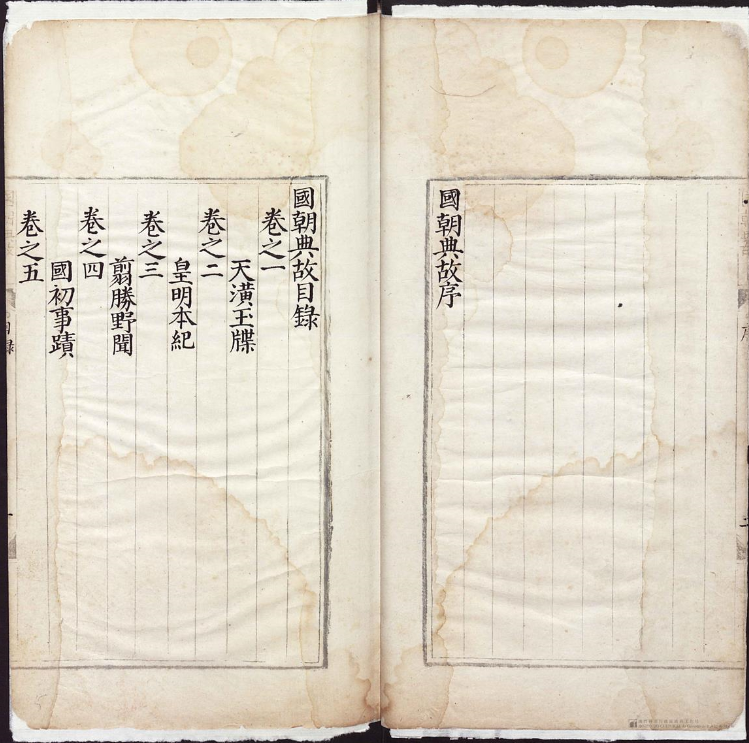 國朝典故序
國朝典故目錄
卷之一
天潢玉牒
卷之二
皇明本紀
卷之三
翦勝野聞
卷之四
國初事蹟
卷之五